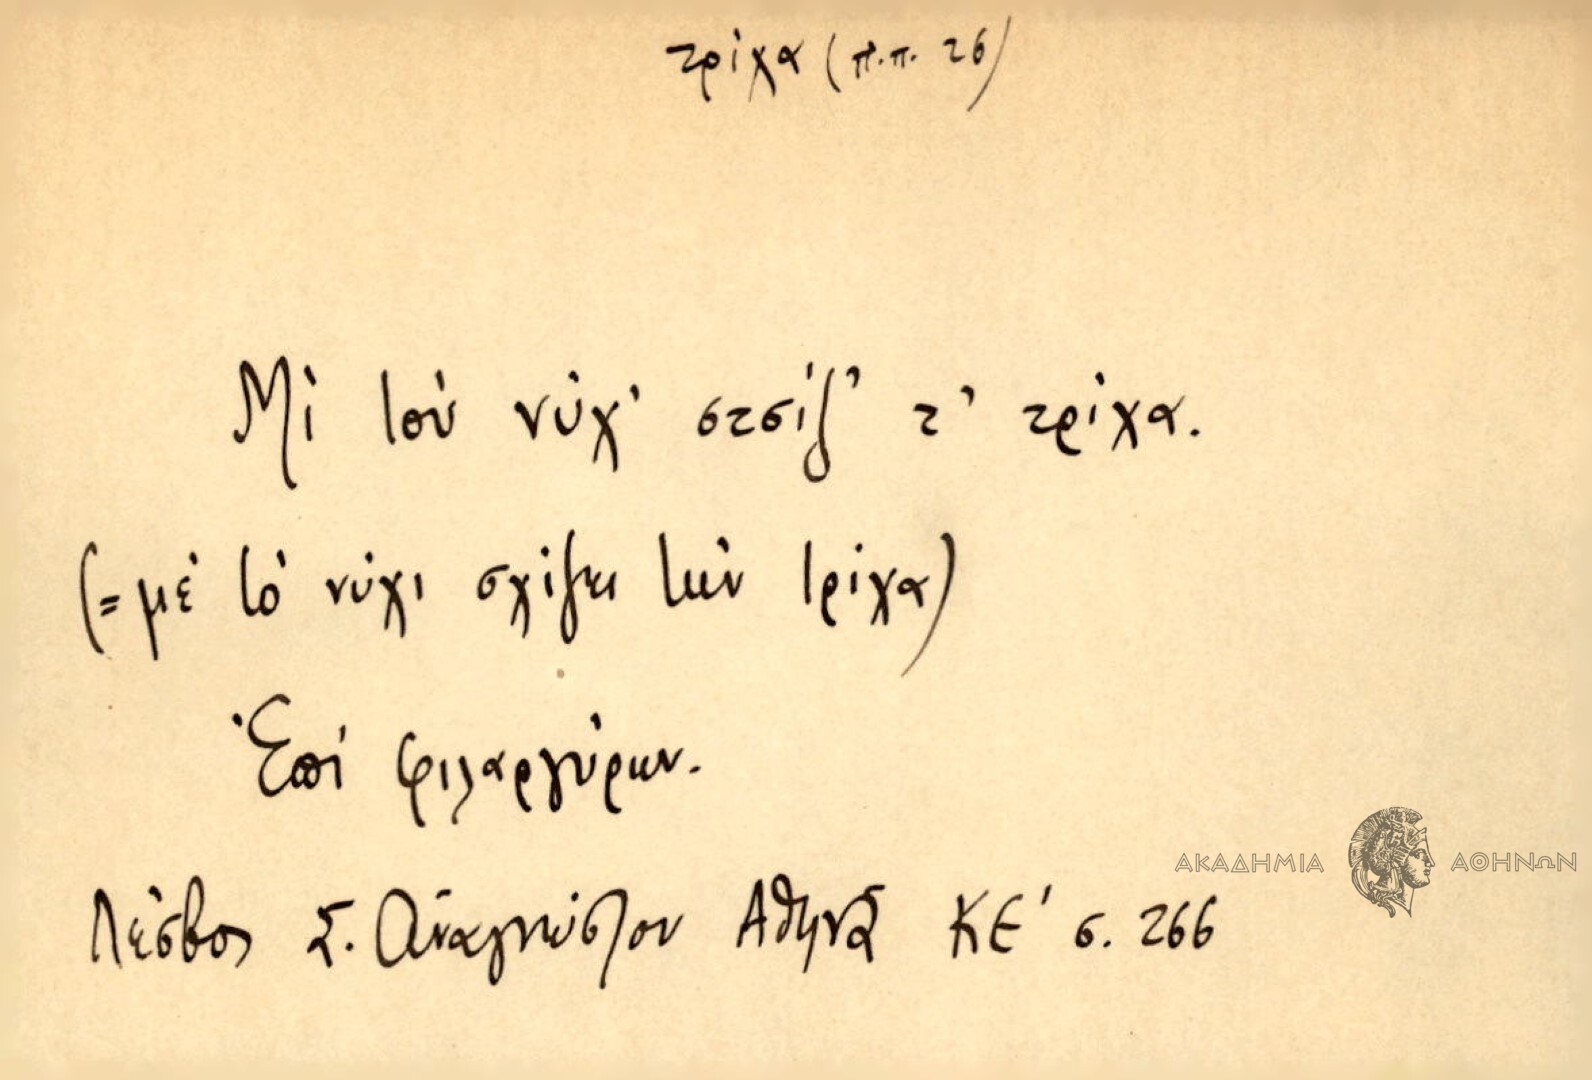 τρίχα (π.π. 26)
Μὶ τοὺ νύχ' στσίζ' τ' τρίχα.
(= μὲ τὸ νύχι σχίζει τὴν τρίχα)
Ἐπὶ φιλαργύρων.
ΑΚΑΔΗΜΙΑ ΑΘΗΝΩΝ
Λέσβος Σ. Ἀναγνώστου Ἀθηνᾶ ΚΕ' σ. 266